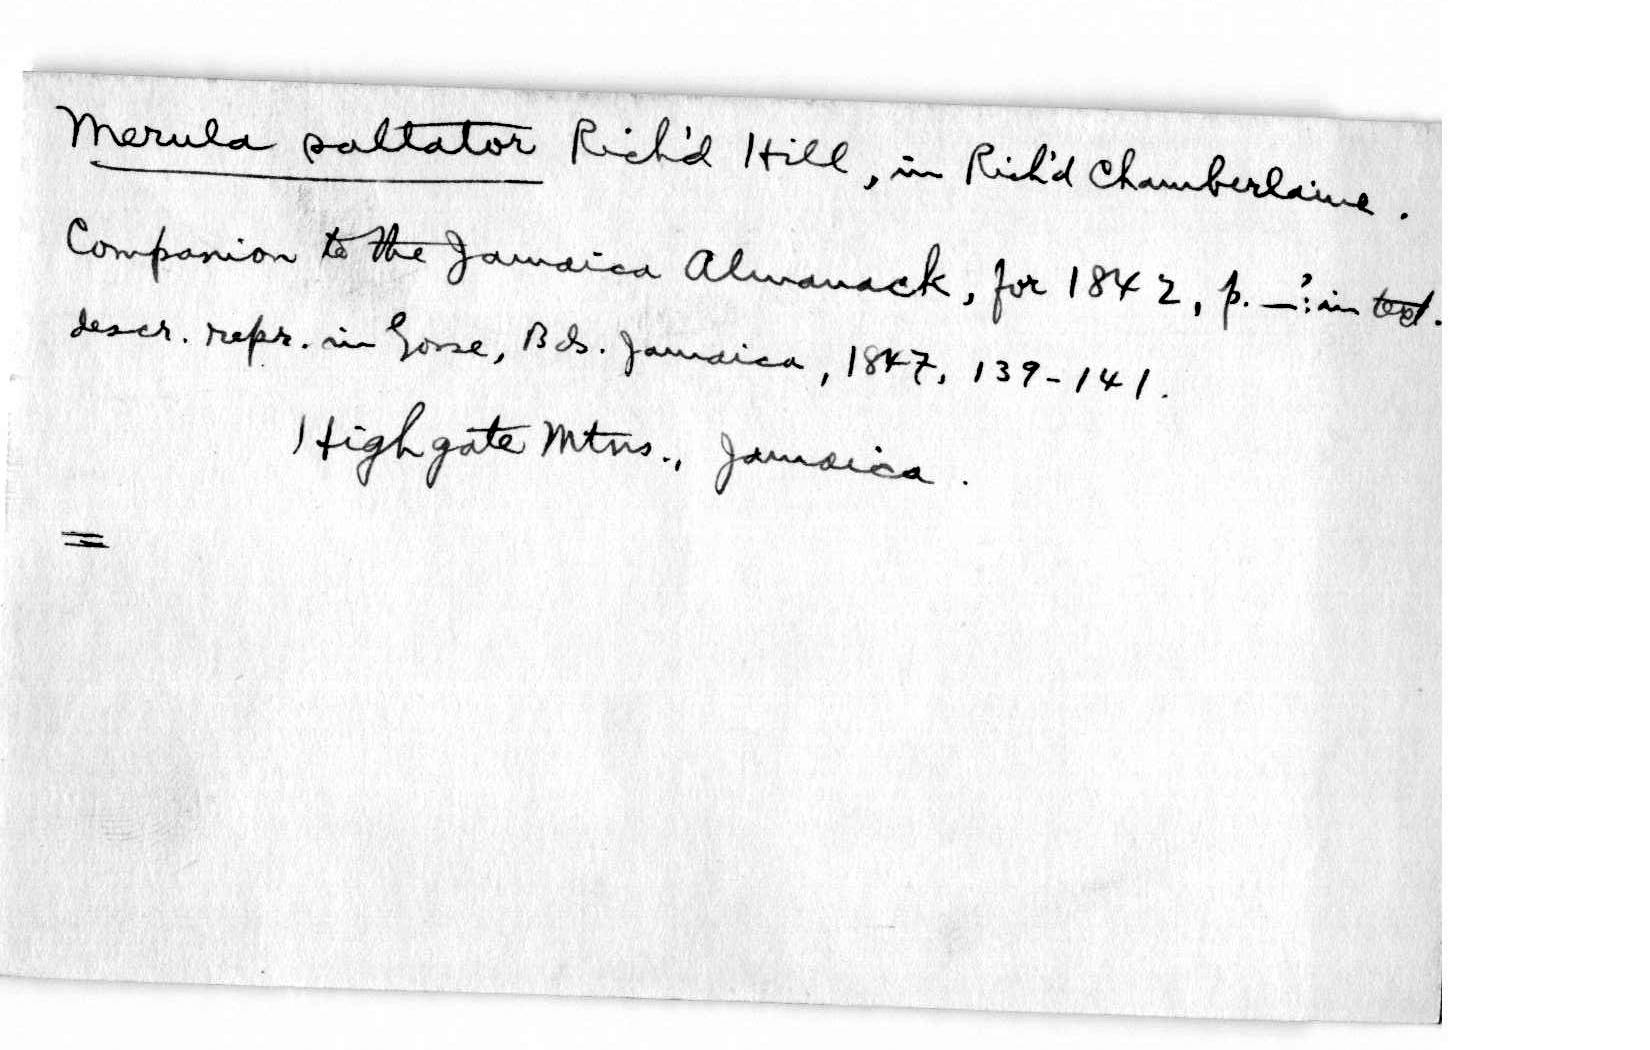 Merula saltator Rich'd Hill, in Rich'd Chamberlaine.
Companion to the Jamaica Almanack, for 1842, p. —?: in text.
descr. repr. in Gosse, Bds. Jamaica, 1847, 139-141.
Highgate Mtns., Jamaica.
=